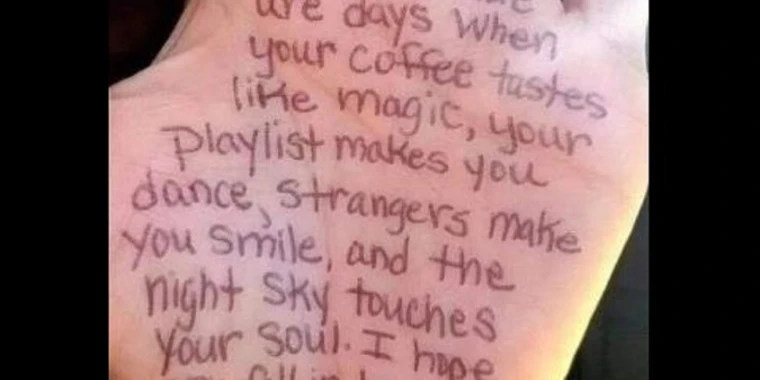 are days when
your coffee tastes
like magic, your
playlist makes you
dance, strangers make
you smile, and the
night sky touches
your soul. I hope